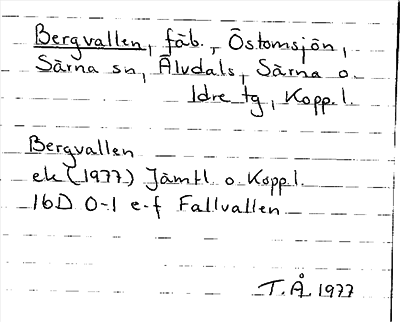 Bergvallen, fäb., Östomsjön,
Särna sn, Älvdals, Särna o.
Idre tg, Kopp.l.
Bergvallen
ek (1977) Jämtl o Kopp.l.
16D 0-1 e-f Fallvallen
T.Å 1977